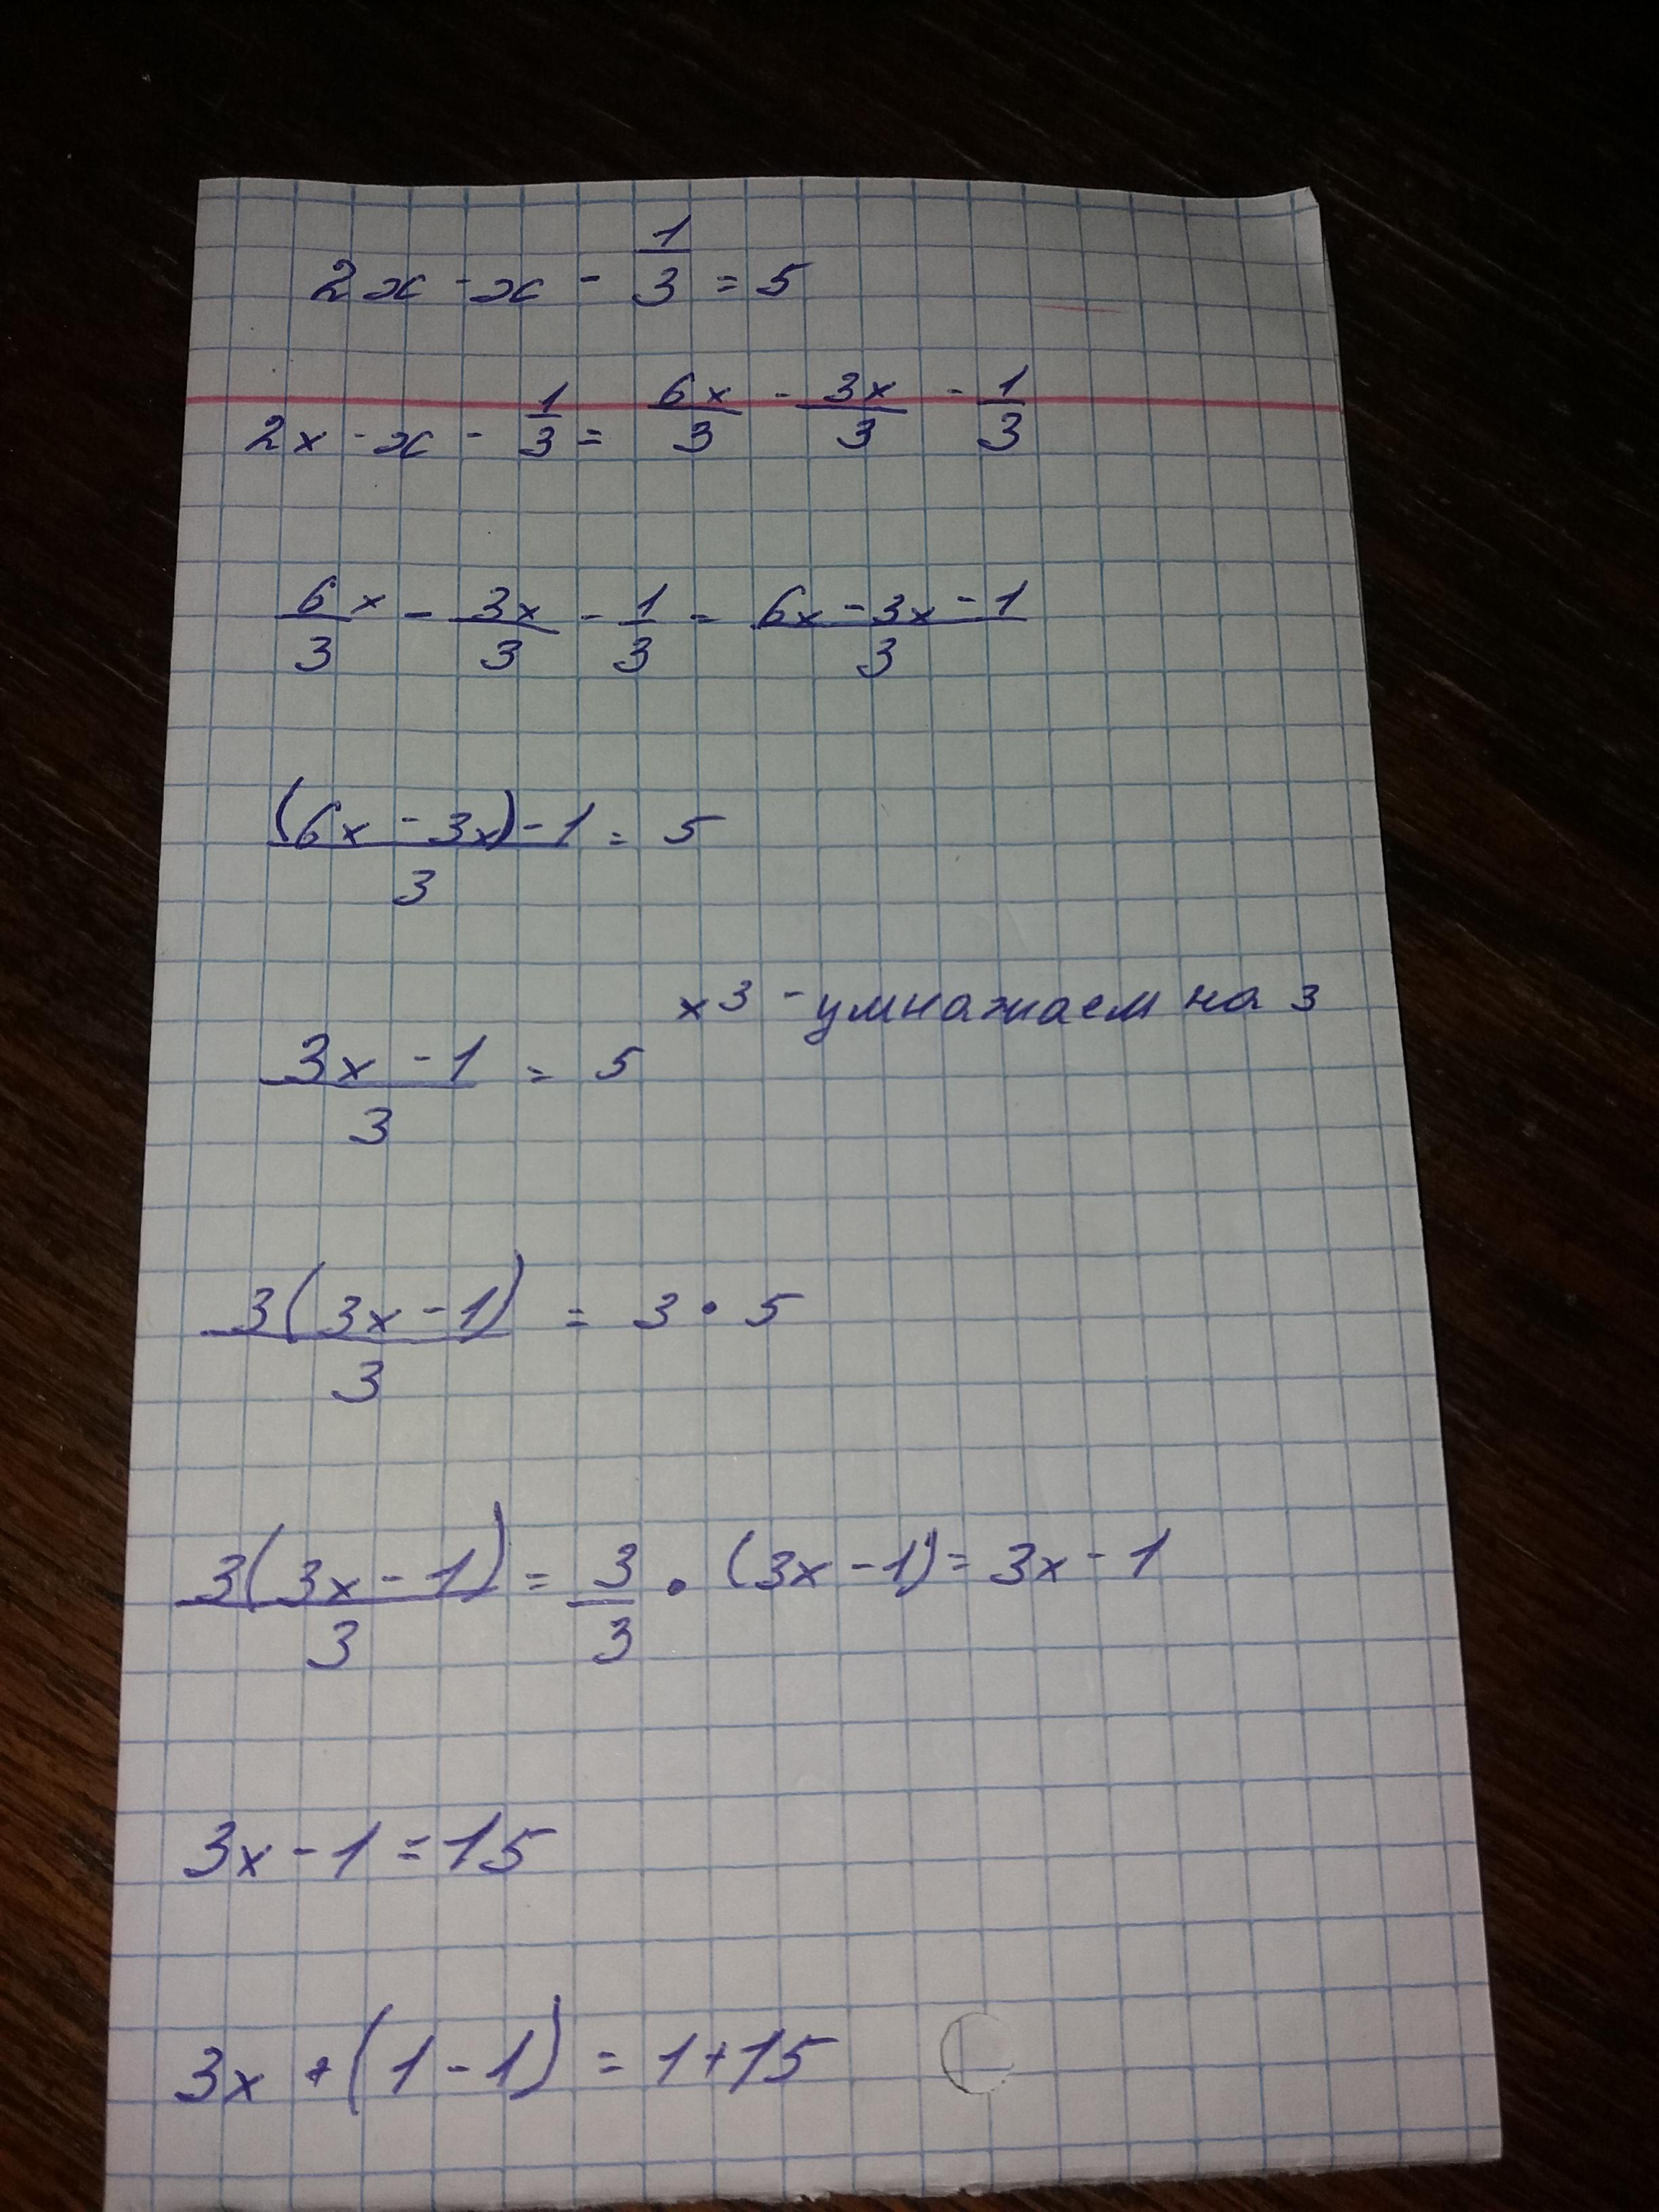 2x - x - 1/3 = 5
2x - x - 1/3 = 6x/3 - 3x/3 - 1/3
6x/3 - 3x/3 - 1/3 = (6x - 3x - 1)/3
((6x - 3x) - 1)/3 = 5
x 3 - умнажаем на 3
(3x - 1)/3 = 5
3(3x - 1)/3 = 3 • 5
3(3x - 1)/3 = 3/3 • (3x - 1) = 3x - 1
3x - 1 = 15
3x + (1 - 1) = 1 + 15